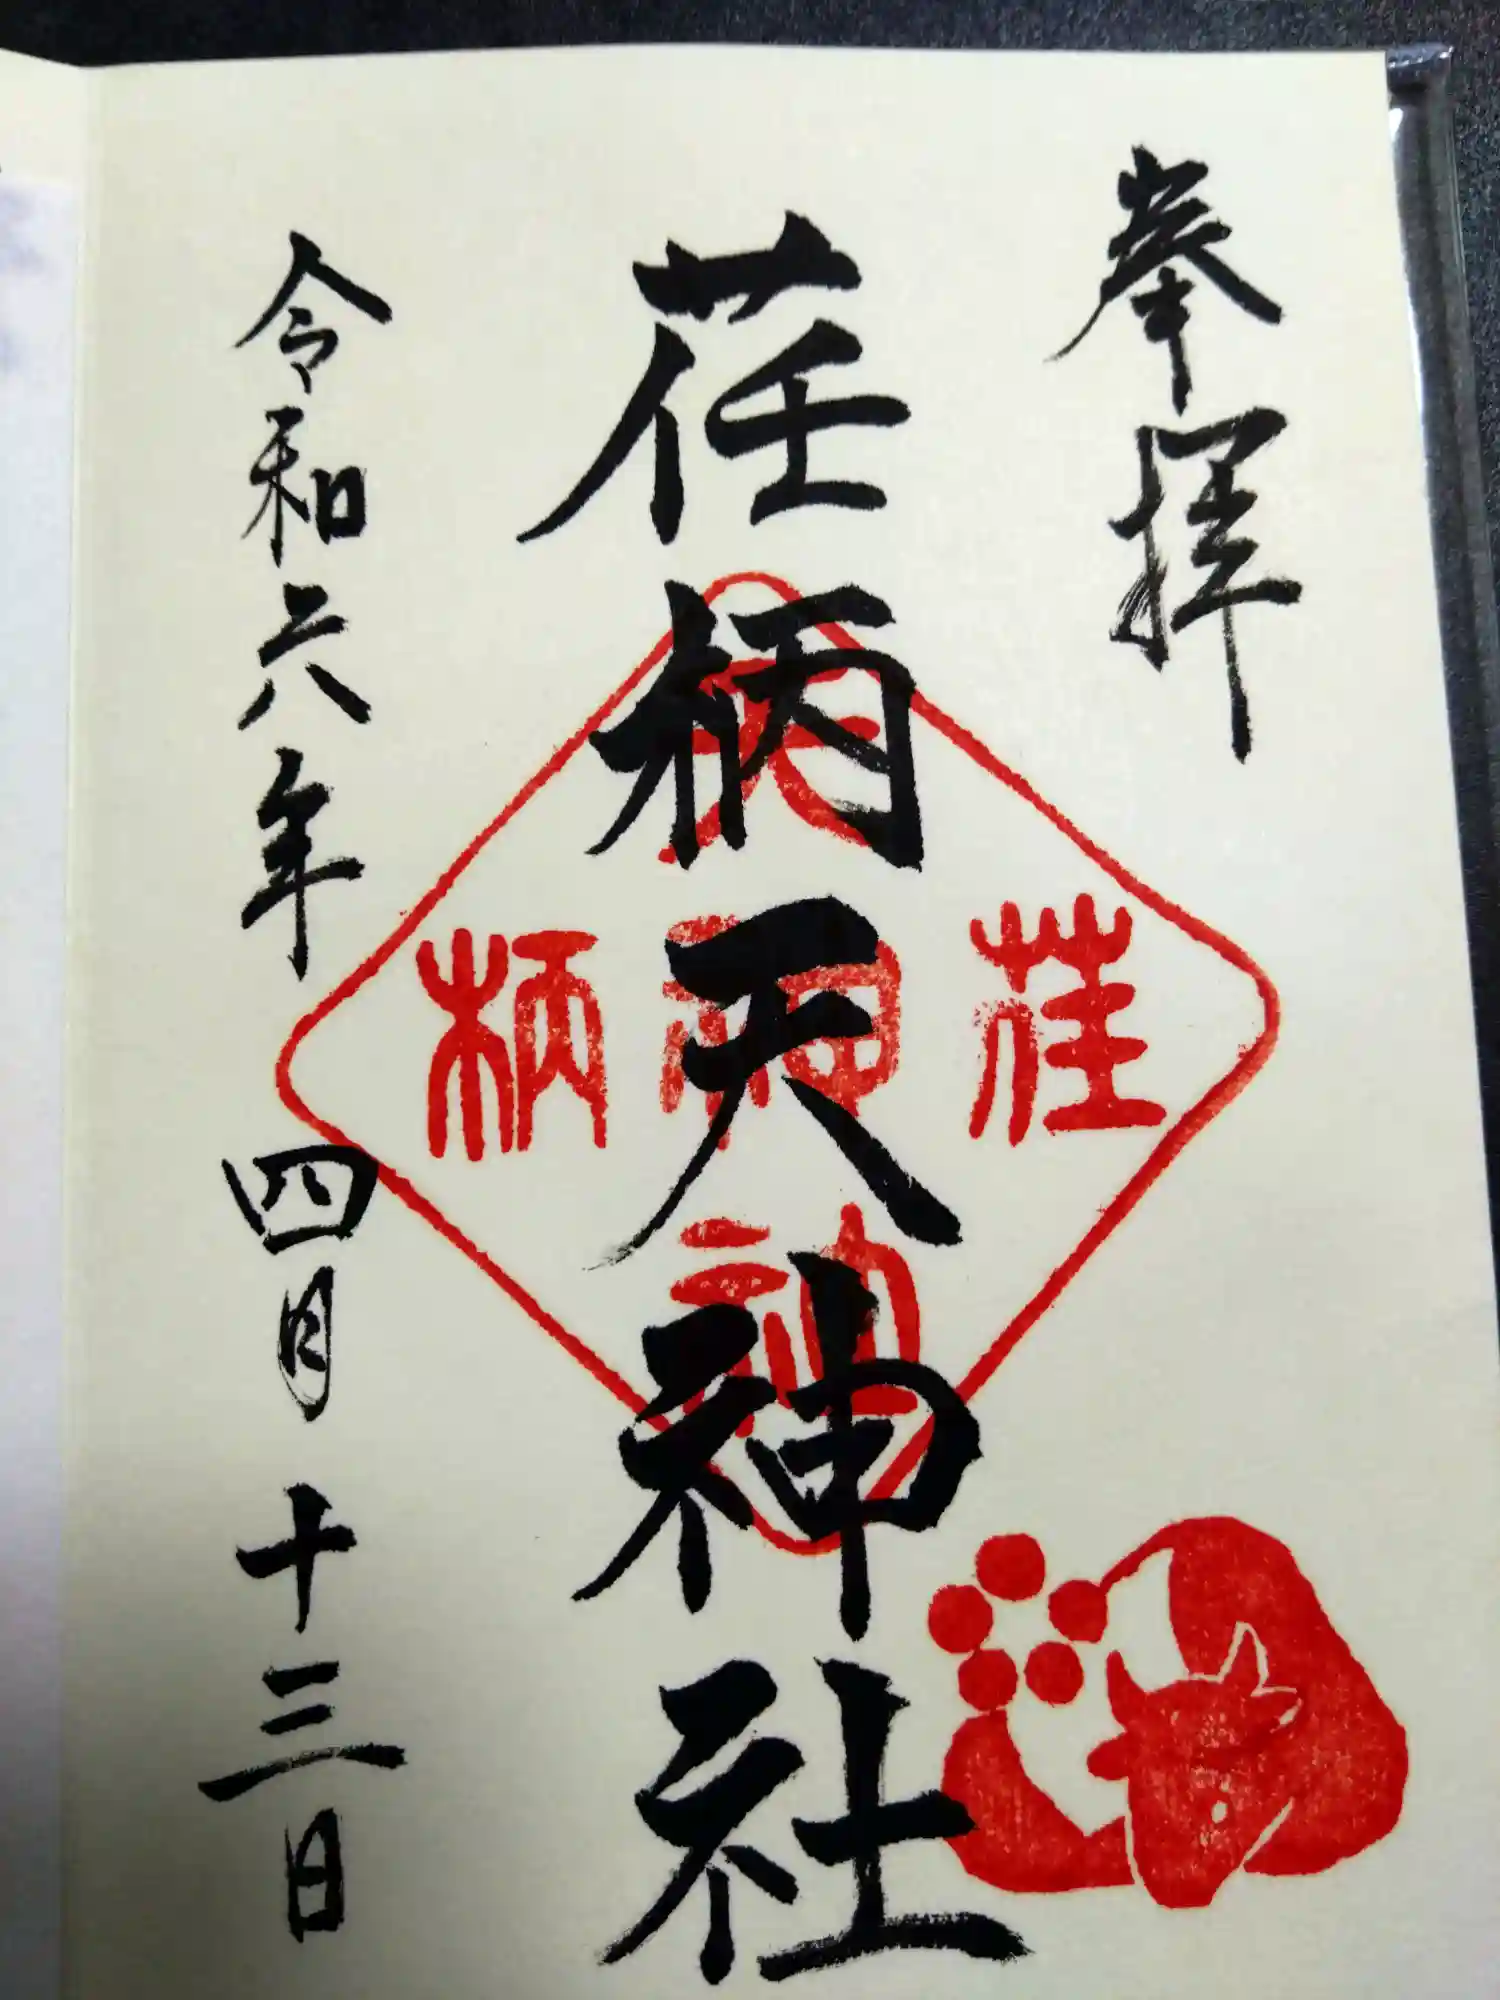 奉拝
荏柄天神社
令和六年 四月 十三日
荏
天神社
柄